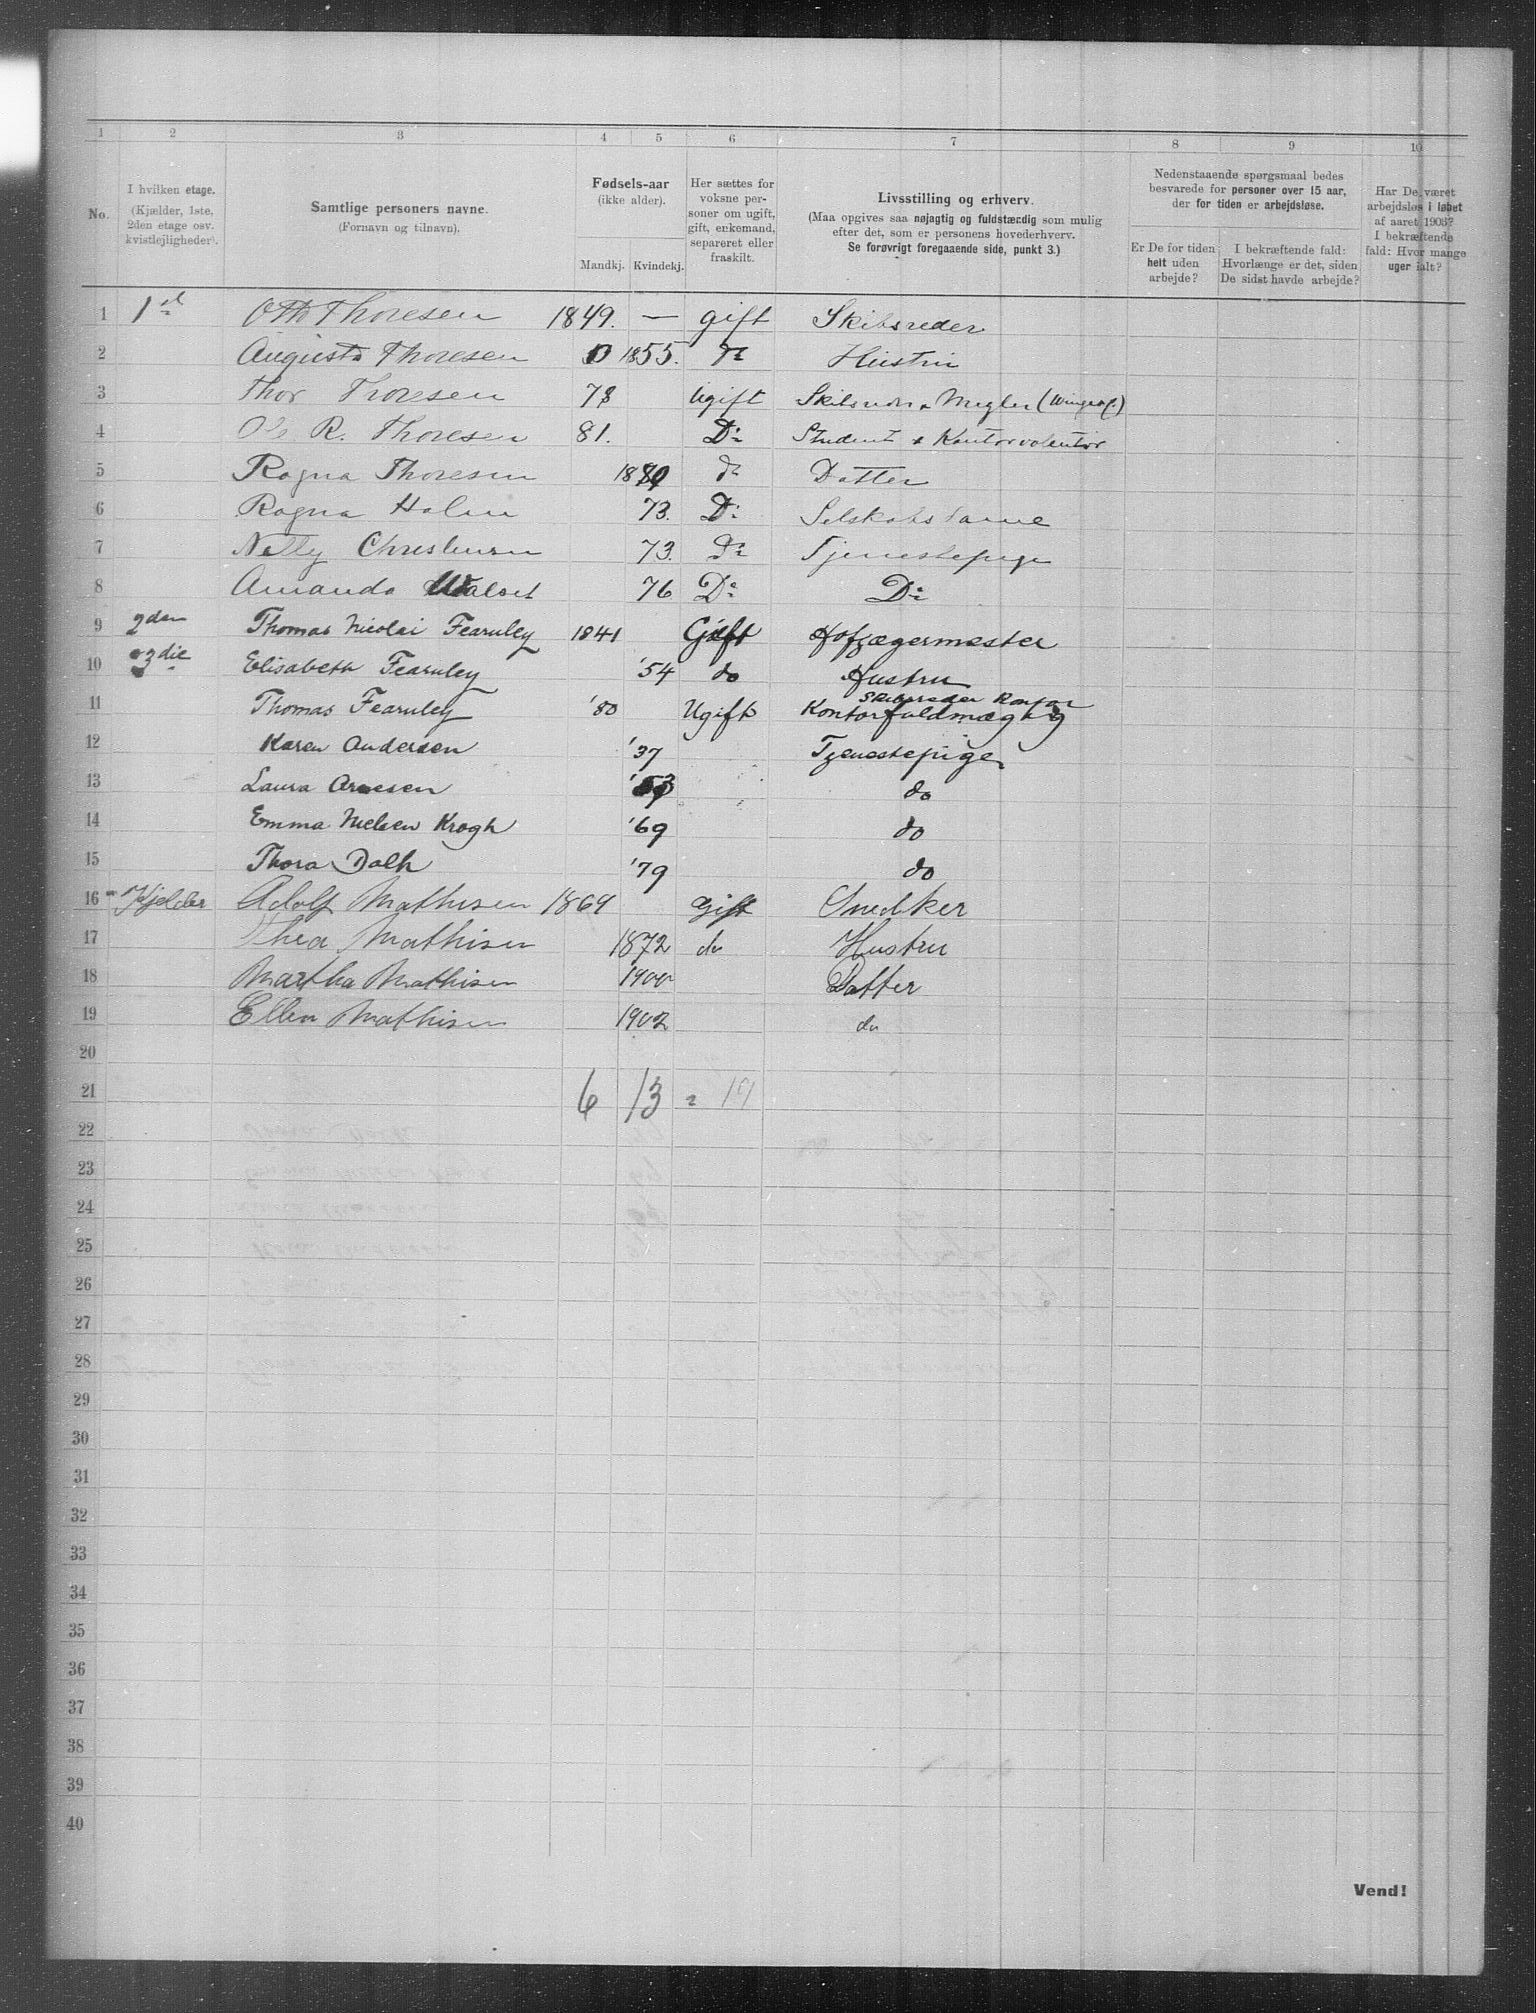 1 2 3 4 5 6 7 8 9 10
No.
I hvilken etage.
(Kjælder, 1ste,
2den etage osv.
kvistlejligheder).
Samtlige personers navne.
(Fornavn og tilnavn).
Fødsels-aar
(ikke alder).
Mandkj. Kvindekj.
Her sættes for
voksne per-
soner om ugift,
gift, enkemand,
separeret eller
fraskilt.
Livsstilling og erhverv.
(Maa opgives saa nøjagtig og fuldstændig som mulig
efter det, som er personens hovederhverv.
Se forøvrigt foregaaende side, punkt 3.)
Nedenstaaende spørgsmaal bedes
besvarede for personer over 15 aar,
der for tiden er arbejdsløse.
Er De for tiden
helt uden
arbejde?
I bekræftende fald:
Hvorlænge er det, siden
De sidst havde arbejde?
Har De været
arbejdsløs i løbet
af aaret 1903?
I bekræftende
fald: Hvor mange
uger ialt?
1 Otto Thoresen 1849. — gift Skibsreder
2 Augusta Thoresen 1855. Hustru
3 Thor Thoresen 78 Ugift Skibsreder & Megler
4 R. Thoresen 81. Do Student & Kontorvolentør
5 Ragna Thoresen do Datter
6 Ragna Holm 73. Do Selskabsdame
7 Nelly 73. Do Tjenestepige
8 Amanda 76 Do Do
9 2den Thomas Nicolai Fearnley 1841 Gift Hofjægermester
10 3die Elisabeth Fearnley '54 do Hustru
11 Thomas Fearnley '80 Ugift Skibsreder Kontor
Kontorfuldmægtig
12 Karen Andersen '37 Tjenestepige
13 Laura do
14 Emma Nielsen Krogh '69 do
15 Thora Dalh '79 do
16 Kjelder Adolf Mathisen 1869 Gift Snedker
17 Thea Mathisen 1872 do Hustru
18 Martha Mathisen 1900 Datter
19 Ellen Mathisen 1902 do
20
21 6 13 = 19
22
23
24
25
26
27
28
29
30
31
32
33
34
35
36
37
38
39
40
Vend!